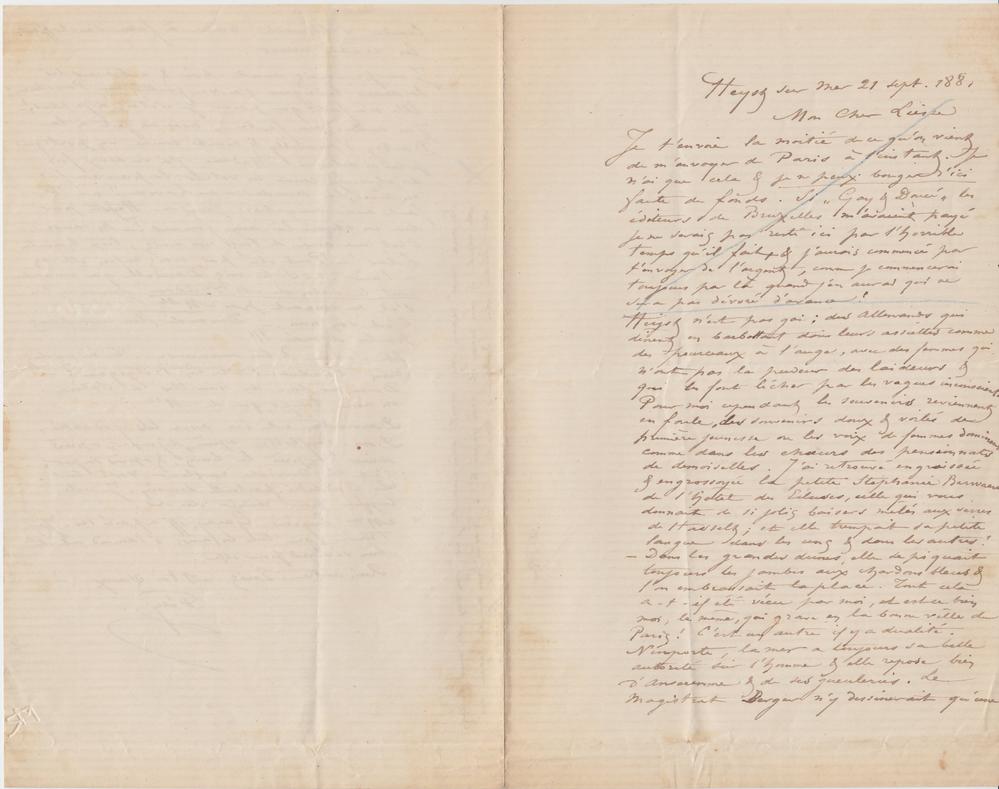 Heyst sur mer 21 sept. 188.
Mon Cher Liesse
Je t'envoie la moitié de ce qu'on vient
de m'envoyer de Paris à l'instant. Je
n'ai que cela & je ne peux bouger d'ici
faute de fonds. Si „Gay & Doucé„ les
éditeurs de Bruxelles m'avaient payé
je ne serais pas resté ici par l'horrible
temps qu'il fait, & j'aurais commencé par
t'envoyer de l'argent, comme je commencerai
toujours par là quand j'en aurai qui ne
sera pas dévoré d'avance!
Heyst n'est pas gai; des Allemands qui
dînent en barbottant dans leurs assiettes comme
des pourceaux à l'auge, avec des femmes qui
n'ont pas la pudeur des laideurs &
que se font lécher par les vagues inconscientes
Pour moi cependant les souvenirs reviennent
en foule, des souvenirs doux & voilés de
première jeunesse où les voix de femmes dominent
comme dans les chœurs des pensionnats
de demoiselles. J'ai retrouvé engraissée
& engrossoyée la petite Stéphanie
de l'Hôtel des Ecluses, celle qui vous
donnait de si jolis baisers mêlés aux
de Hasselt, et elle trempait sa petite
langue dans les uns & dans les autres!
– Dans les grandes dunes, elle se piquait
toujours les jambes aux chardons bleus &
l'on embrassait la place. Tout cela
a-t-il été vécu par moi, et est-ce bien
moi, le même, qui grave en la bonne ville de
Paris! C'est un autre il y a dualité.
N'importe, la mer a toujours sa belle
autorité sur l'homme & elle repose bien
d'Anseremme & de ses gueuleries. Le
magistrat Berger n'y dessinerait qu'une